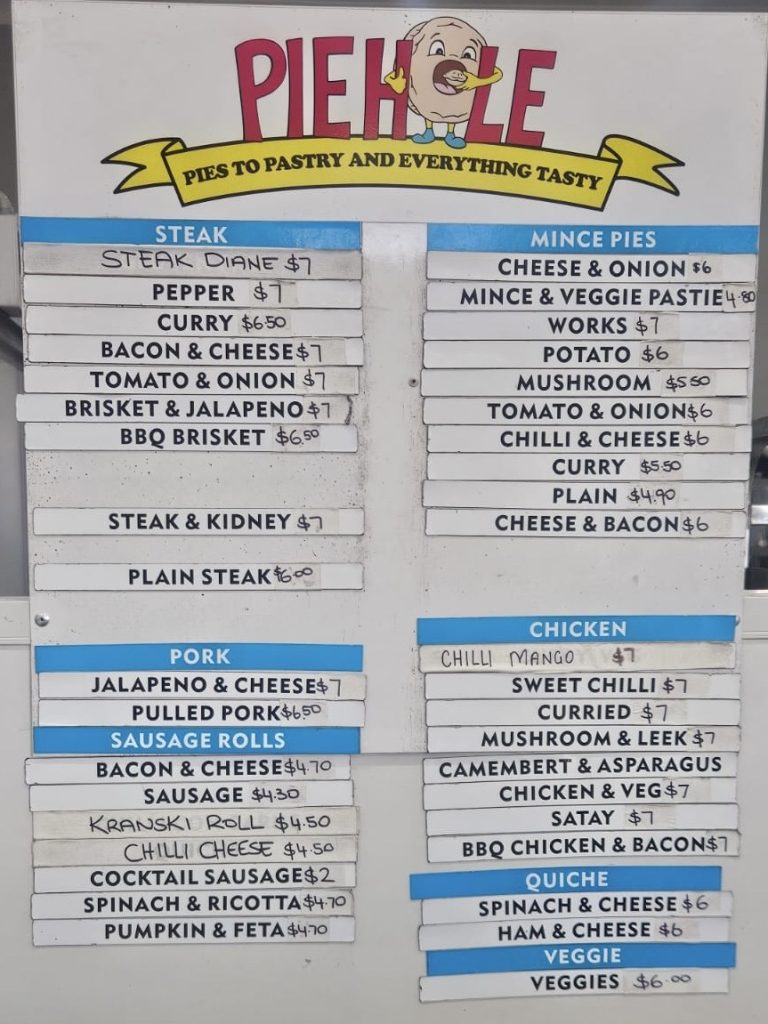 PIEHOLE
PIES TO PASTRY AND EVERYTHING TASTY
STEAK
STEAK DIANE $7
PEPPER $7
CURRY $6.50
BACON & CHEESE $7
TOMATO & ONION $7
BRISKET & JALAPENO $7
BBQ BRISKET $6.50
STEAK & KIDNEY $7
PLAIN STEAK $6.00
PORK
JALAPENO & CHEESE $7
PULLED PORK $6.50
SAUSAGE ROLLS
BACON & CHEESE $4.70
SAUSAGE $4.30
KRANSKI ROLL $4.50
CHILLI CHEESE $4.50
COCKTAIL SAUSAGE $2
SPINACH & RICOTTA $4.70
PUMPKIN & FETA $4.70
MINCE PIES
CHEESE & ONION $6
MINCE & VEGGIE PASTIE 4.80
WORKS $7
POTATO $6
MUSHROOM $5.50
TOMATO & ONION $6
CHILLI & CHEESE $6
CURRY $5.50
PLAIN $4.90
CHEESE & BACON $6
CHICKEN
CHILLI MANGO $7
SWEET CHILLI $7
CURRIED $7
MUSHROOM & LEEK $7
CAMEMBERT & ASPARAGUS
CHICKEN & VEG $7
SATAY $7
BBQ CHICKEN & BACON $7
QUICHE
SPINACH & CHEESE $6
HAM & CHEESE $6
VEGGIE
VEGGIES $6.00